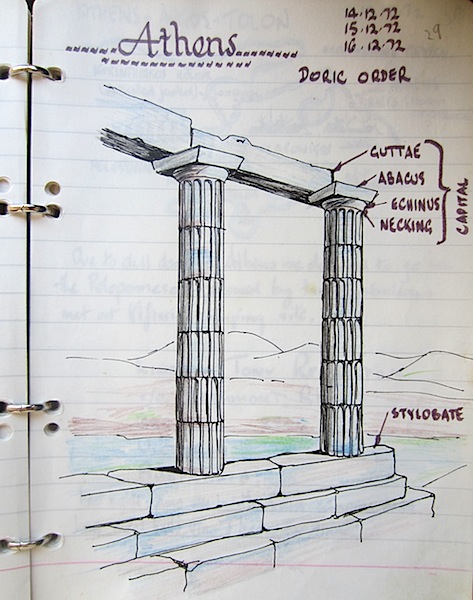 Athens
14.12.72
15.12.72
16.12.72
29
DORIC ORDER
GUTTAE
ABACUS
ECHINUS
NECKING
CAPITAL
STYLOBATE